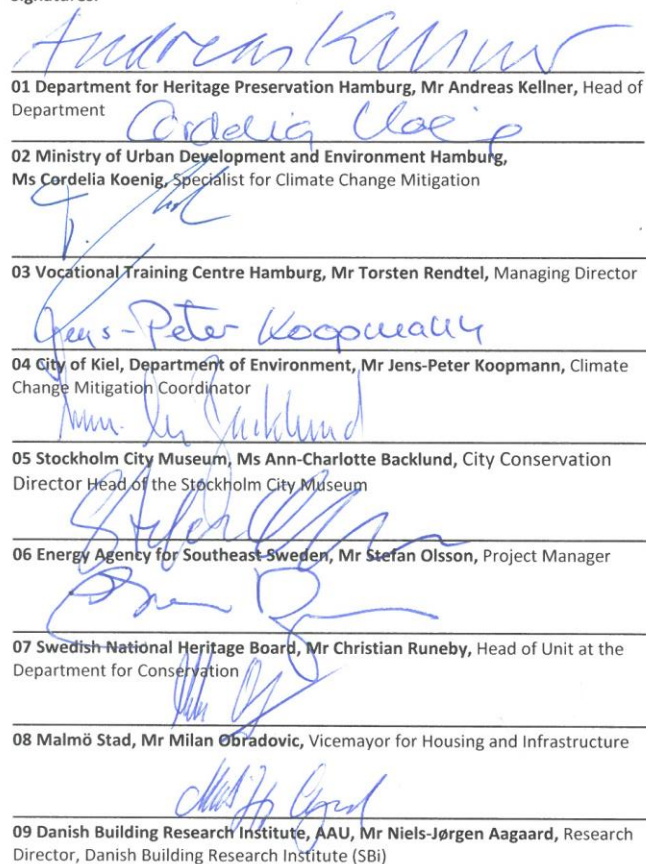 Signatures:
Andreas Kellner
01 Department for Heritage Preservation Hamburg, Mr Andreas Kellner, Head of
Department
Cordelia Koenig
02 Ministry of Urban Development and Environment Hamburg,
Ms Cordelia Koenig, Specialist for Climate Change Mitigation
03 Vocational Training Centre Hamburg, Mr Torsten Rendtel, Managing Director
Jens-Peter Koopmann
04 City of Kiel, Department of Environment, Mr Jens-Peter Koopmann, Climate
Change Mitigation Coordinator
05 Stockholm City Museum, Ms Ann-Charlotte Backlund, City Conservation
Director Head of the Stockholm City Museum
06 Energy Agency for Southeast Sweden, Mr Stefan Olsson, Project Manager
07 Swedish National Heritage Board, Mr Christian Runeby, Head of Unit at the
Department for Conservation
08 Malmö Stad, Mr Milan Obradovic, Vicemayor for Housing and Infrastructure
09 Danish Building Research Institute, AAU, Mr Niels-Jørgen Aagaard, Research
Director, Danish Building Research Institute (SBi)